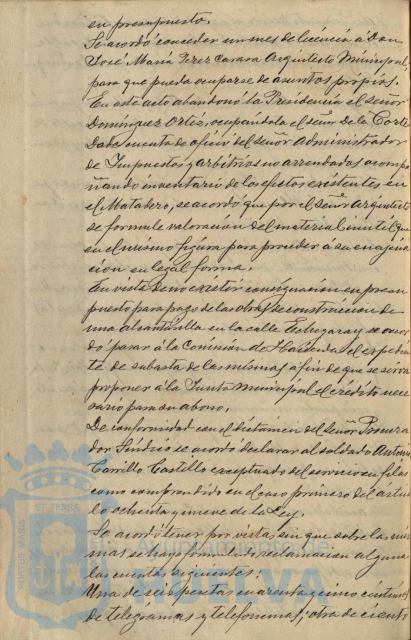 su presupuesto.
Se acordó conceder un mes de licencia á Don
José María Perez Carasa Arquitecto Municipal,
para que pueda ocuparse de asuntos propios.
En este acto abandonó la Presidencia el señor
Dominguez Ortiz, ocupándola el señor De la Corte
Dada cuenta de oficio del señor Administrador
de Impuestos y arbitrios no arrendados acompa
ñando inventario de los efectos existentes en
el Matadero, se acordó que por el señor Arquitecto
se formule valoración del material inutil que
en el mismo figura para proceder á su enajena
cion en legal forma.
En vista de no existir consignación en presu
puesto para pago de las obras de construcción de
una alcantarilla en la calle Echegaray se acor
dó pasar á la Comisión de Hacienda el expedien
te de subasta de las mismas á fin de que se sirva
proponer á la Junta Municipal el crédito nece
sario para su abono.
De conformidad con el dictámen del señor Procura
dor Síndico se acordó declarar al soldado Antonio
Carrillo Castillo exceptuado del servicio en filas
como comprendido en el caso primero del artícu
lo ochenta y nueve de la Ley.
Se acordó tener por vistas sin que sobre las mis
mas se haya formulado reclamacion alguna
las cuentas siguientes:
Una de seis pesetas cuarenta y cinco céntimos
de telegramas y telefonemas; otra de ciento
PORTUS MARIS ET TERRAE
HUELVA